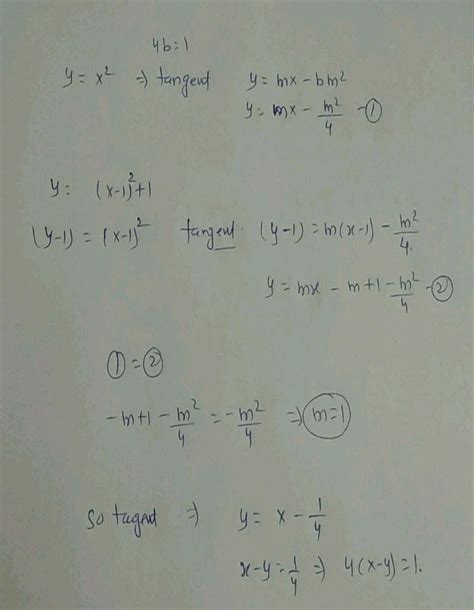 4b=1
y = x² ⇒ tangent y = mx - bm²
y = mx - m²/4 - ①
y = (x-1)²+1
(y-1) = (x-1)² tangent. (y-1) = m(x-1) - m²/4.
y = mx - m+1 - m²/4 - ②
① = ②
-m+1 - m²/4 = -m²/4 ⇒ m=1
So tagent ⇒ y = x - 1/4
x-y = 1/4 ⇒ 4(x-y) = 1.